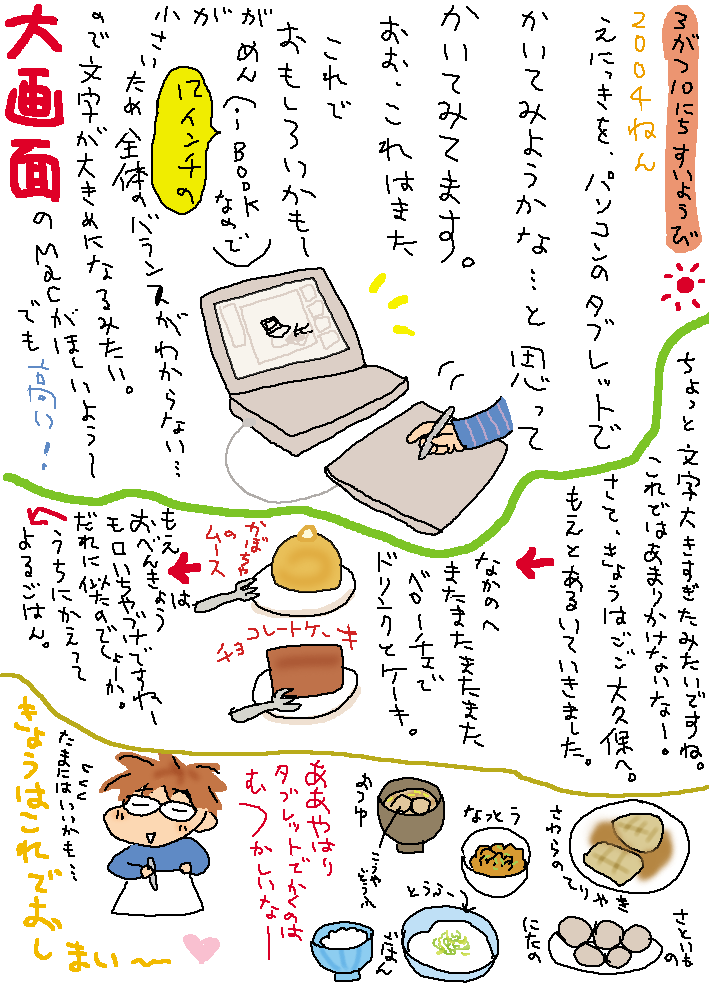 3がつ10にち すいようび
2004ねん
えにっきを、パソコンのタブレットで
かいてみようかな…と思って
かいてみてます。
おお、これはまた
これで
おもしろいかもー
がめん(i-BOOKなので)
が
12インチの
小さいため全体のバランスがわからない…
ので文字が大きめになるみたい。
大画面のMacがほしいようー
でも高い!
ちょっと文字大きすぎたみたいですね。
これではあまりかけないなー。
さて、きょうはごご大久保へ。
もえとあるいていきました。
なかのへ
またまたまたまた
ベローチェで
ドリンクとケーキ。
かぼちゃ
の
ムース
チョコレートケーキ
もえは、
おべんきょう
モロいちゃづけですねー
だれに似たのでしょーか。
うちにかえって
よるごはん。
さわらのてりやき
さといも
の
にたの
なっとう
とうふ〜
おつゆ
こうやどうふ
ごはん
ああやはり
タブレットでかくのは
むつかしいなー
たまにはいいかも…
きょうはこれでおしまい〜